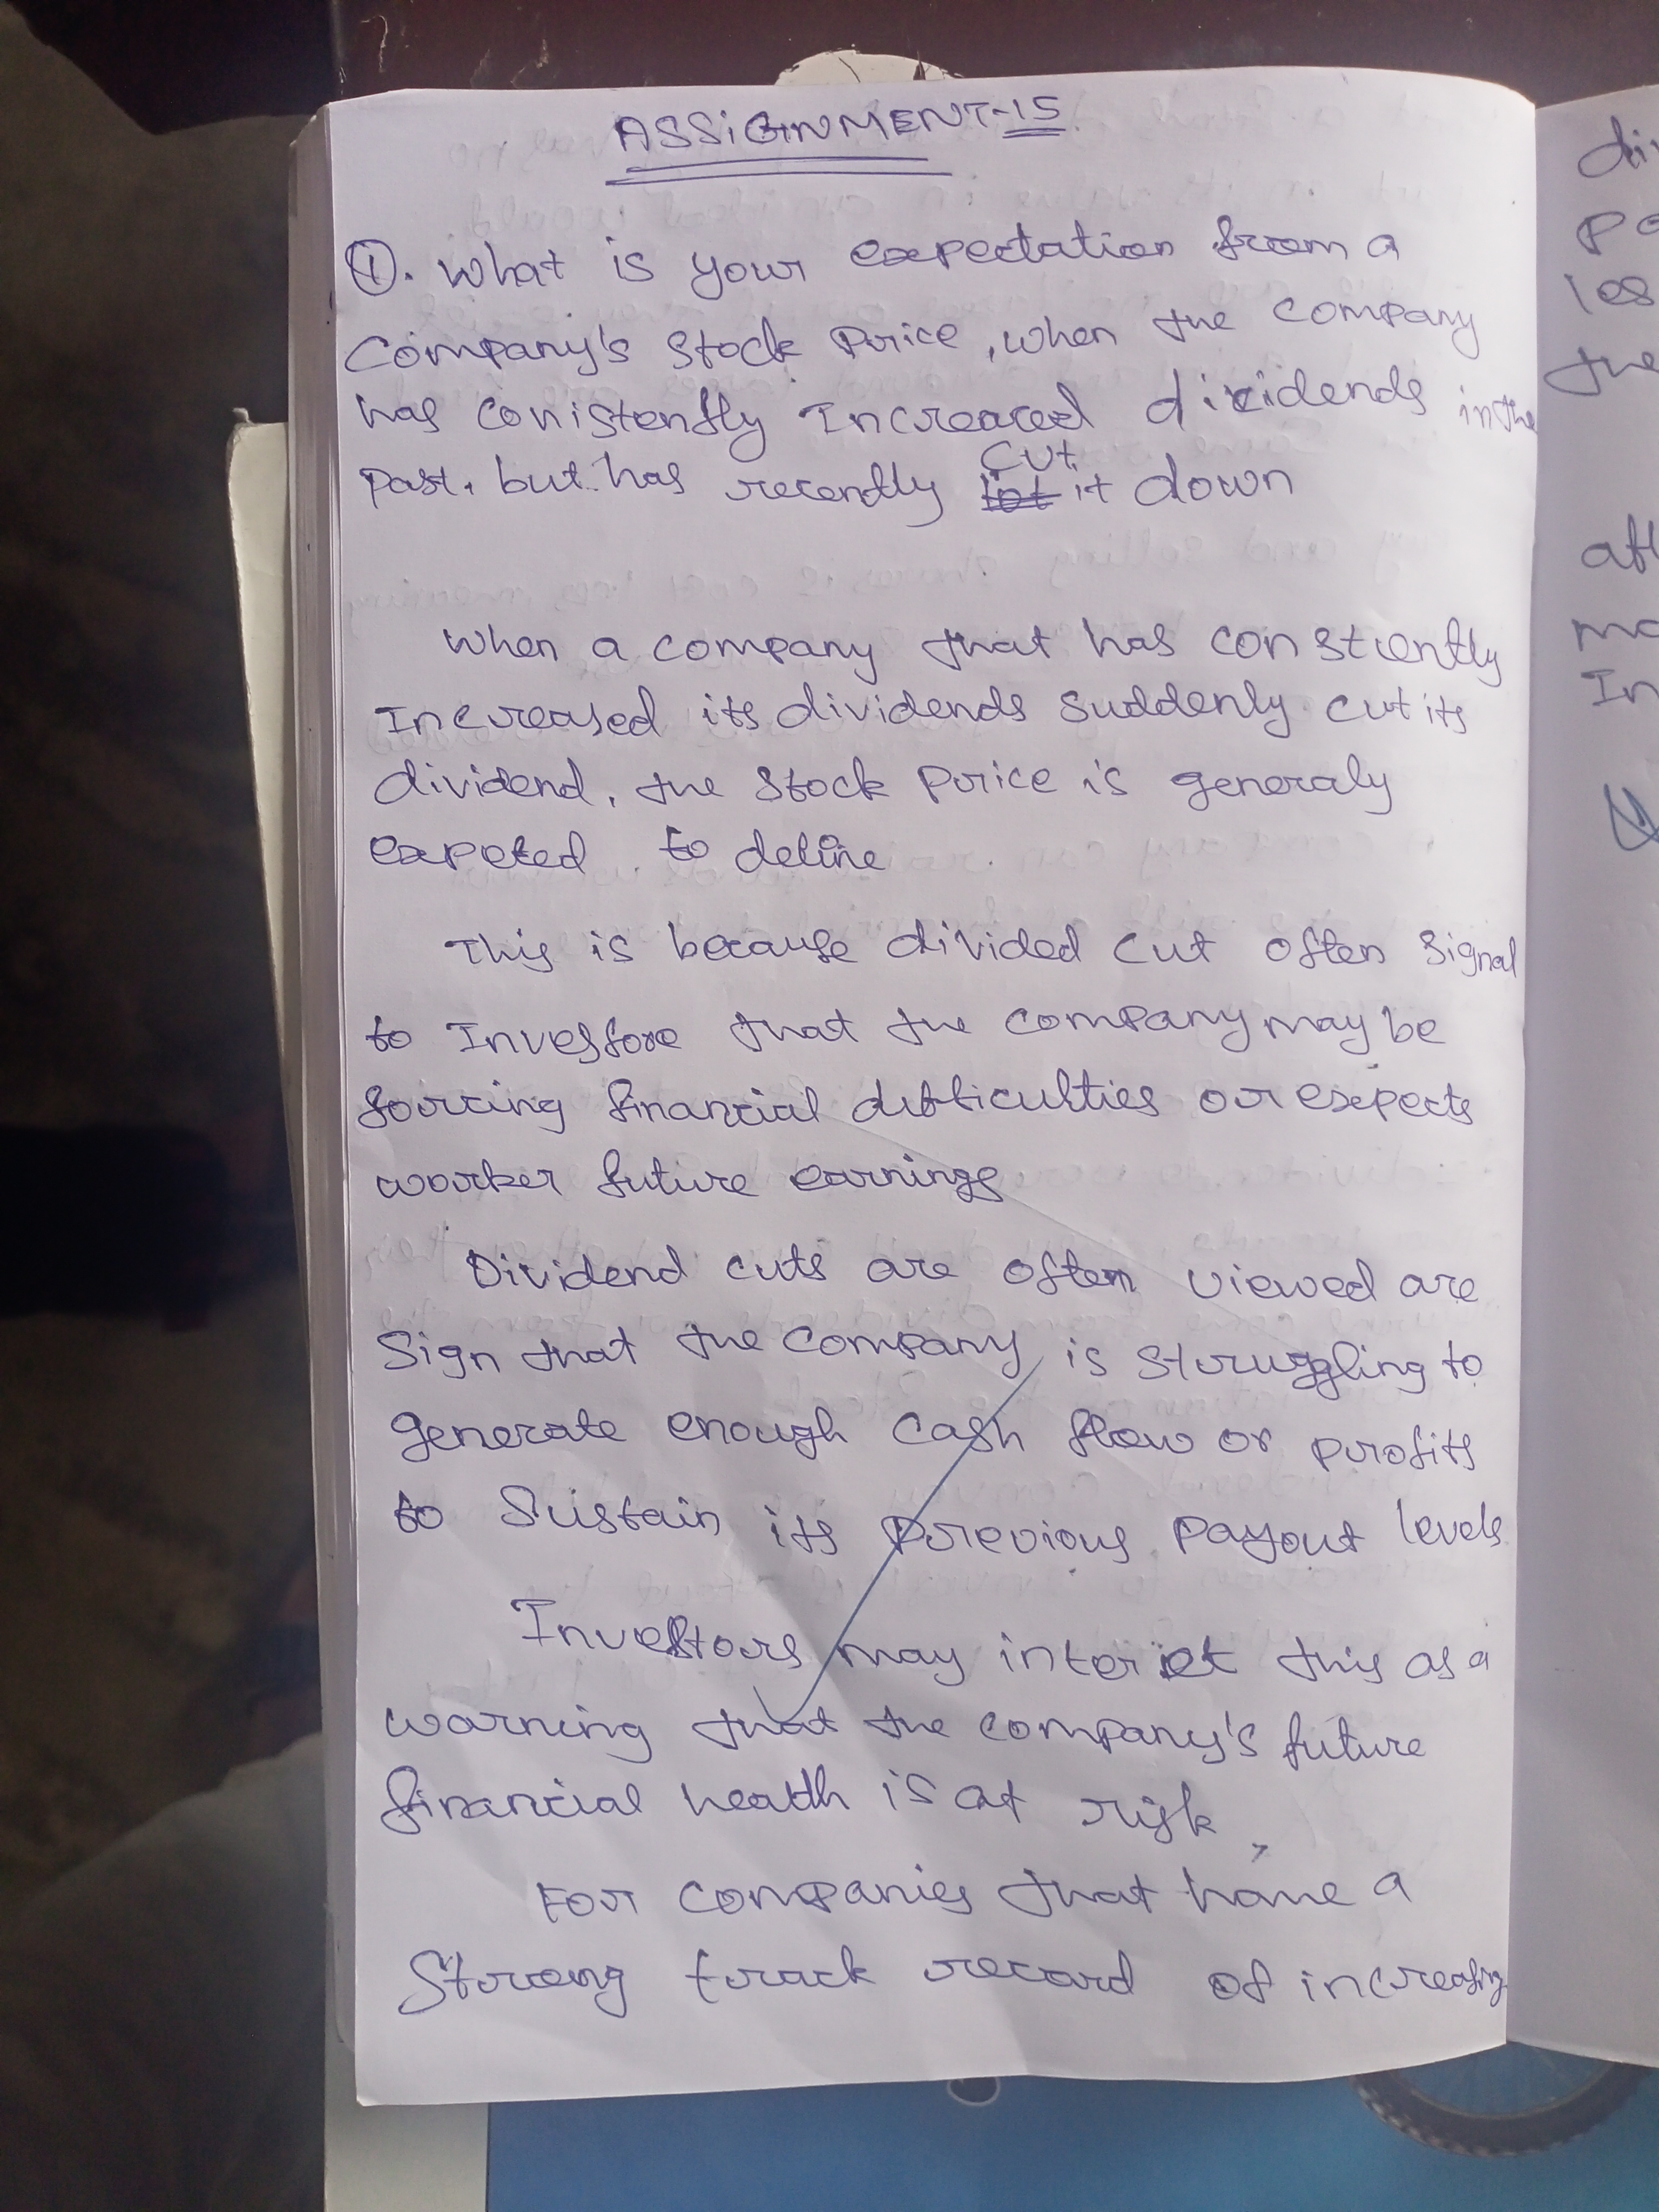 ASSIGNMENT-15
①. What is your expectation from a
Company's Stock Price, when the company
has conistently Increaced dividends in the
Past. but has recently cut it down
When a company that has constiently
Increased its dividends suddenly cut its
dividend, the stock price is generaly
expeted to deline
This is because divided cut often signal
to Investore that the company may be
forcing financial difficulties or expects
worker future earnings
Dividend cuts are often viewed are
Sign that the company is struggling to
generate enough cash flow or profits
to Sustain its previous payout levels
Investors may interiet this as a
warning that the company's future
financial health is at risk,
For companies that have a
Strong track record of increasing
di
Po
les
the
aft
mo
In